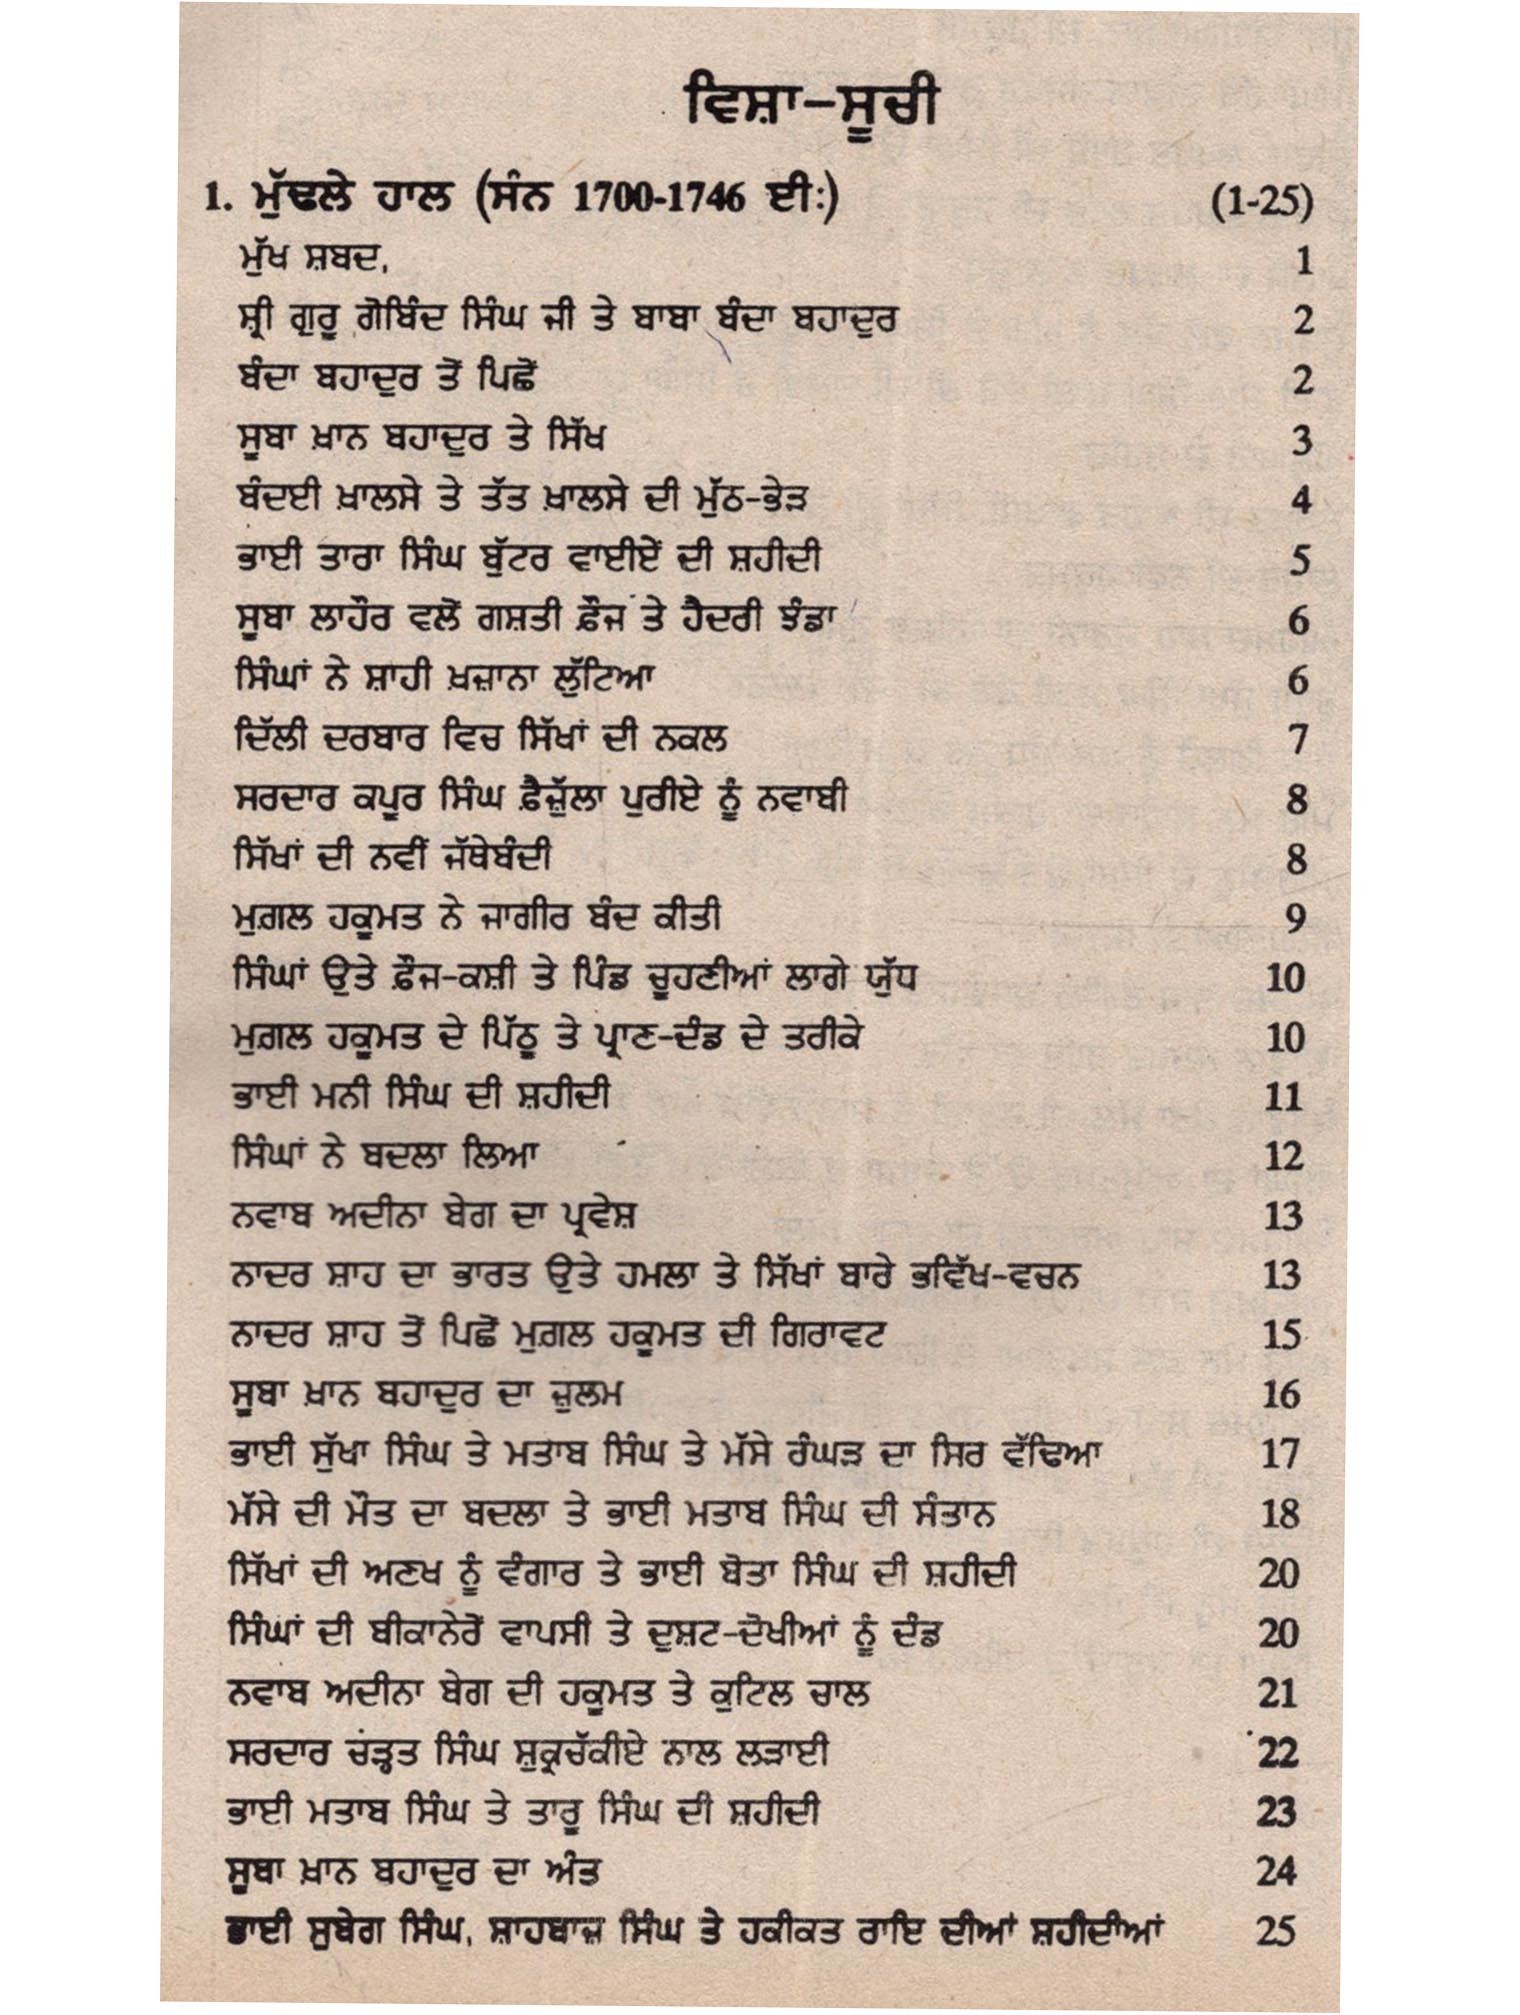 ਵਿਸ਼ਾ-ਸੂਚੀ
1. ਮੁੱਢਲੇ ਹਾਲ (ਸੰਨ 1700-1746 ਈ:) (1-25)
ਮੁੱਖ ਸ਼ਬਦ, 1
ਸ਼੍ਰੀ ਗੁਰੂ ਗੋਬਿੰਦ ਸਿੰਘ ਜੀ ਤੇ ਬਾਬਾ ਬੰਦਾ ਬਹਾਦੁਰ 2
ਬੰਦਾ ਬਹਾਦੁਰ ਤੋਂ ਪਿਛੋਂ 2
ਸੂਬਾ ਖ਼ਾਨ ਬਹਾਦੁਰ ਤੇ ਸਿੱਖ 3
ਬੰਦਈ ਖ਼ਾਲਸੇ ਤੇ ਤੱਤ ਖ਼ਾਲਸੇ ਦੀ ਮੁੱਠ-ਭੇੜ 4
ਭਾਈ ਤਾਰਾ ਸਿੰਘ ਬੁੱਟਰ ਵਾਈਏਂ ਦੀ ਸ਼ਹੀਦੀ 5
ਸੂਬਾ ਲਾਹੌਰ ਵਲੋਂ ਗਸ਼ਤੀ ਫ਼ੌਜ ਤੇ ਹੈਦਰੀ ਝੰਡਾ 6
ਸਿੰਘਾਂ ਨੇ ਸ਼ਾਹੀ ਖ਼ਜ਼ਾਨਾ ਲੁੱਟਿਆ 6
ਦਿੱਲੀ ਦਰਬਾਰ ਵਿਚ ਸਿੱਖਾਂ ਦੀ ਨਕਲ 7
ਸਰਦਾਰ ਕਪੂਰ ਸਿੰਘ ਫ਼ੈਜ਼ੁੱਲਾ ਪੁਰੀਏ ਨੂੰ ਨਵਾਬੀ 8
ਸਿੱਖਾਂ ਦੀ ਨਵੀਂ ਜੱਥੇਬੰਦੀ 8
ਮੁਗ਼ਲ ਹਕੂਮਤ ਨੇ ਜਾਗੀਰ ਬੰਦ ਕੀਤੀ 9
ਸਿੰਘਾਂ ਉਤੇ ਫ਼ੌਜ-ਕਸ਼ੀ ਤੇ ਪਿੰਡ ਚੂਹਣੀਆਂ ਲਾਗੇ ਯੁੱਧ 10
ਮੁਗ਼ਲ ਹਕੂਮਤ ਦੇ ਪਿੱਠੂ ਤੇ ਪ੍ਰਾਣ-ਦੰਡ ਦੇ ਤਰੀਕੇ 10
ਭਾਈ ਮਨੀ ਸਿੰਘ ਦੀ ਸ਼ਹੀਦੀ 11
ਸਿੰਘਾਂ ਨੇ ਬਦਲਾ ਲਿਆ 12
ਨਵਾਬ ਅਦੀਨਾ ਬੇਗ ਦਾ ਪ੍ਰਵੇਸ਼ 13
ਨਾਦਰ ਸ਼ਾਹ ਦਾ ਭਾਰਤ ਉਤੇ ਹਮਲਾ ਤੇ ਸਿੱਖਾਂ ਬਾਰੇ ਭਵਿੱਖ-ਵਚਨ 13
ਨਾਦਰ ਸ਼ਾਹ ਤੋਂ ਪਿਛੋਂ ਮੁਗ਼ਲ ਹਕੂਮਤ ਦੀ ਗਿਰਾਵਟ 15
ਸੂਬਾ ਖ਼ਾਨ ਬਹਾਦੁਰ ਦਾ ਜ਼ੁਲਮ 16
ਭਾਈ ਸੁੱਖਾ ਸਿੰਘ ਤੇ ਮਤਾਬ ਸਿੰਘ ਤੇ ਮੱਸੇ ਰੰਘੜ ਦਾ ਸਿਰ ਵੱਢਿਆ 17
ਮੱਸੇ ਦੀ ਮੌਤ ਦਾ ਬਦਲਾ ਤੇ ਭਾਈ ਮਤਾਬ ਸਿੰਘ ਦੀ ਸੰਤਾਨ 18
ਸਿੱਖਾਂ ਦੀ ਅਣਖ ਨੂੰ ਵੰਗਾਰ ਤੇ ਭਾਈ ਬੋਤਾ ਸਿੰਘ ਦੀ ਸ਼ਹੀਦੀ 20
ਸਿੰਘਾਂ ਦੀ ਬੀਕਾਨੇਰੋਂ ਵਾਪਸੀ ਤੇ ਦੁਸ਼ਟ-ਦੋਖੀਆਂ ਨੂੰ ਦੰਡ 20
ਨਵਾਬ ਅਦੀਨਾ ਬੇਗ ਦੀ ਹਕੂਮਤ ਤੇ ਕੁਟਿਲ ਚਾਲ 21
ਸਰਦਾਰ ਚੜ੍ਹਤ ਸਿੰਘ ਸ਼ੁਕ੍ਰਚੱਕੀਏ ਨਾਲ ਲੜਾਈ 22
ਭਾਈ ਮਤਾਬ ਸਿੰਘ ਤੇ ਤਾਰੂ ਸਿੰਘ ਦੀ ਸ਼ਹੀਦੀ 23
ਸੂਬਾ ਖ਼ਾਨ ਬਹਾਦੁਰ ਦਾ ਅੰਤ 24
ਭਾਈ ਸੁਬੇਗ ਸਿੰਘ, ਸ਼ਾਹਬਾਜ਼ ਸਿੰਘ ਤੇ ਹਕੀਕਤ ਰਾਇ ਦੀਆਂ ਸ਼ਹੀਦੀਆਂ 25